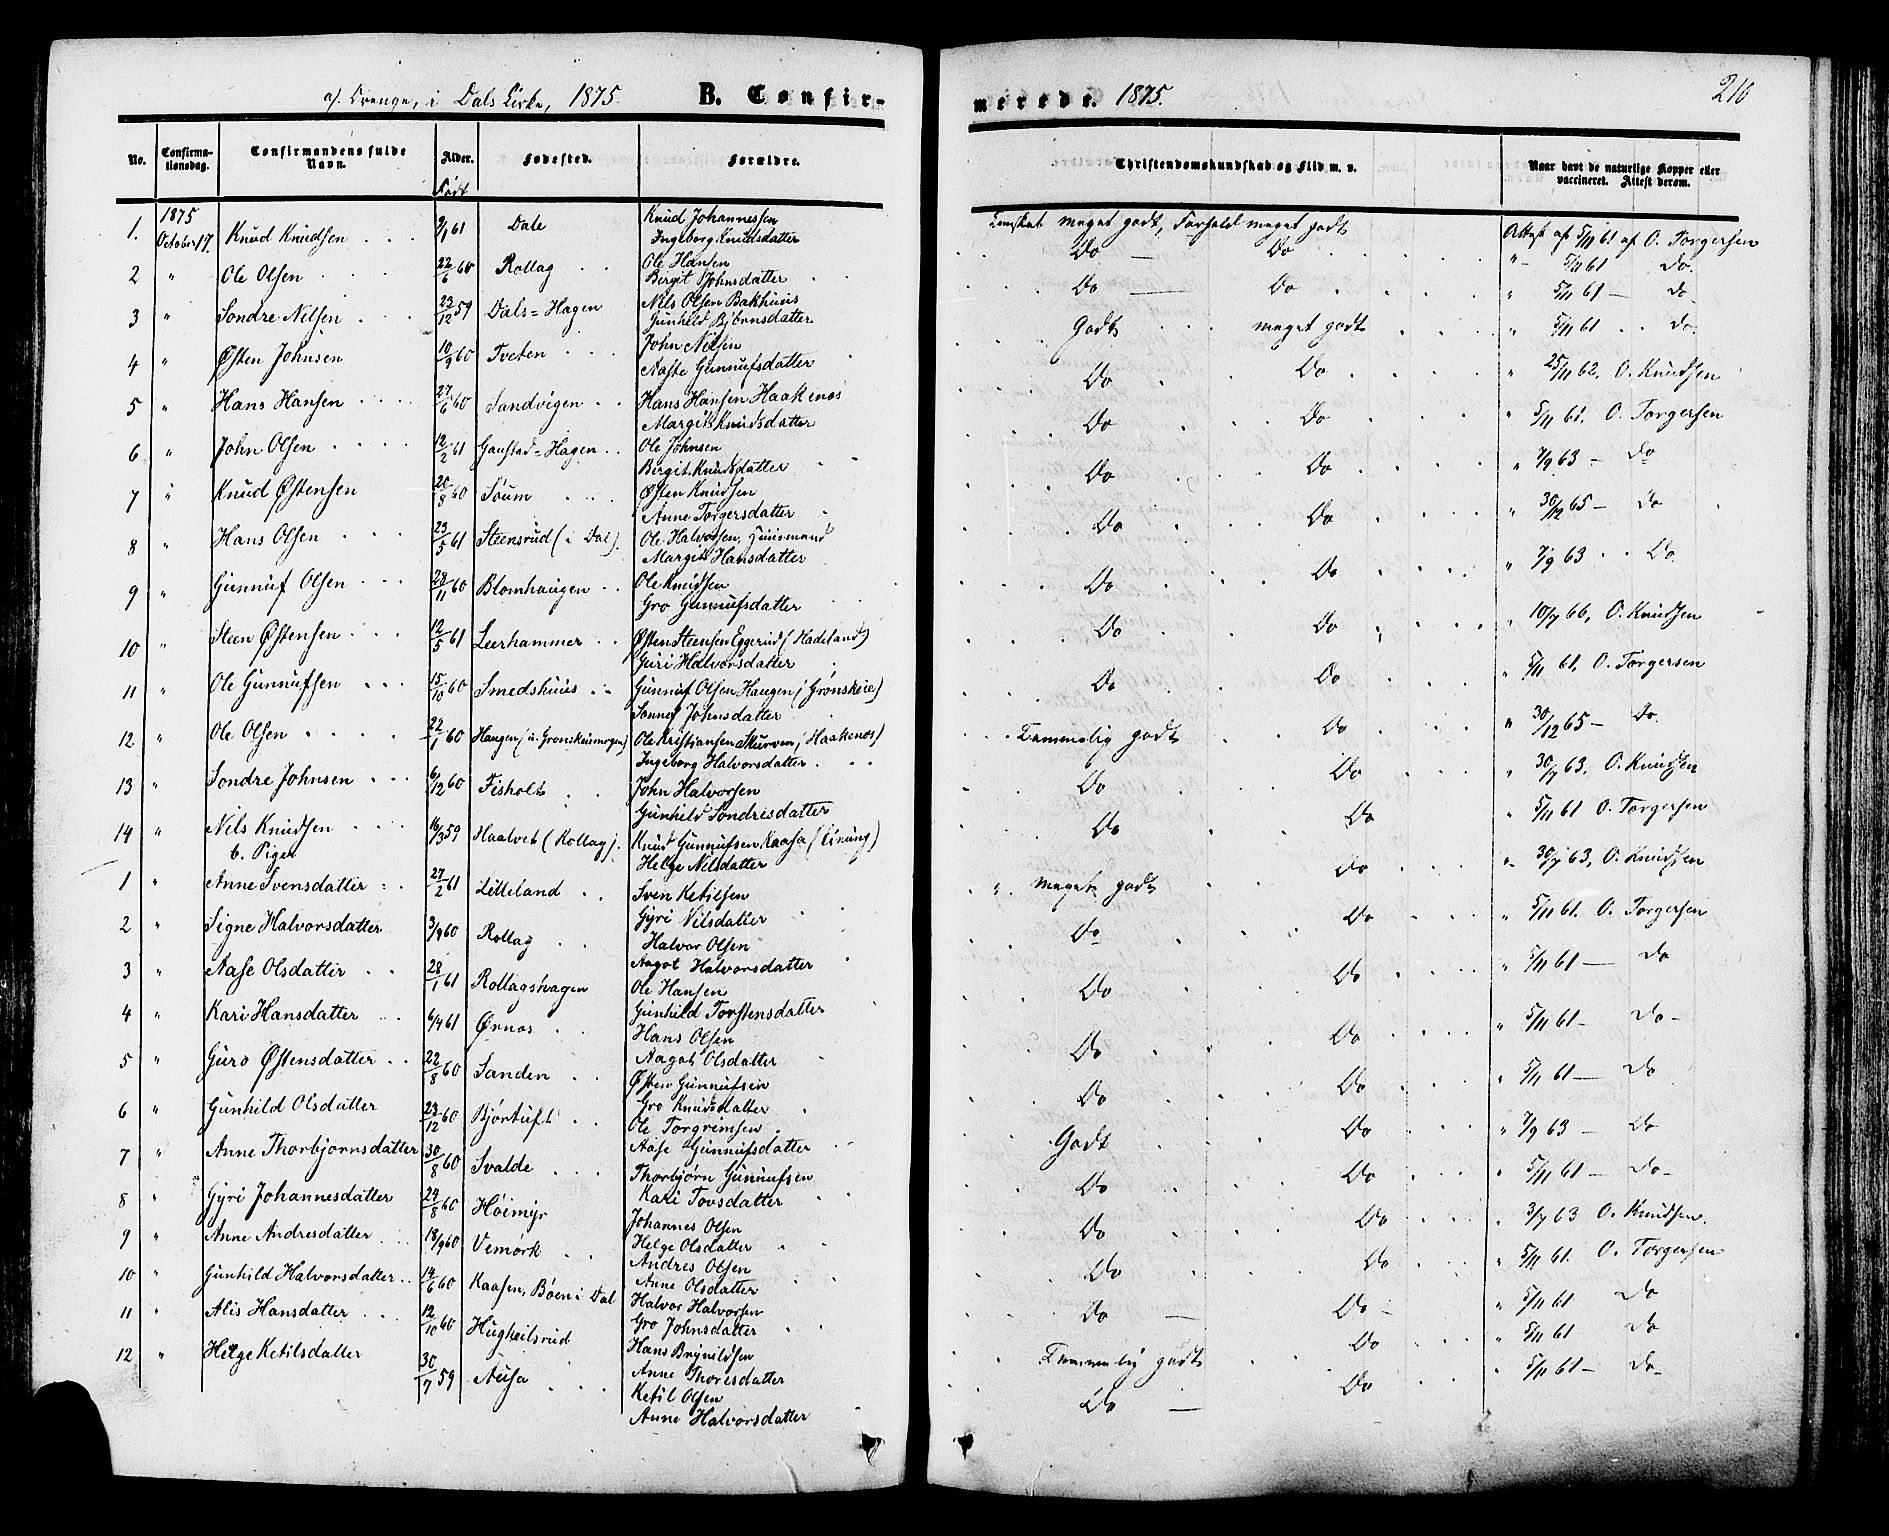 a/. Drenge, i Dals Kirke, 1875. B. Confir-
No. Confirma-tionsdag. Confirmandens fulde Navn. Alder. Fødested. Forældre.
Født
1. 1875 October 17. Knud Knudsen 9/1 61 Dale Knud Johannessen
Ingeborg Knudsdatter
2 " Ole Olsen 22/6 60 Rollag Ole Hansen
Birgit Johnsdatter
3 " Sondre Nilsen 23/12 59 Dals=Hagen Nils Olsen Bakhuus
Gunhild Bjørnsdatter
4 " Østen Johnsen 10/9 60 Tveten John Nilsen
Aaste Gunnufsdatter
5 " Hans Hansen 27/6 60 Sandvigen Hans Hansen Haakenes
Margit Knudsdatter
6 " John Olsen 12/2 61 Gaustad=Hagen Ole Johnsen
Birgit Knudsdatter
7 " Knud Østensen 20/8 60 Soum Østen Knudsen
Anne Torgersdatter
8 " Hans Olsen 23/5 61 Steensrud (i Dal). Ole Halvorsen, Huusmand
Margit Hansdatter
9 " Gunnuf Olsen 28/11 60 Blomhaugen Ole Knudsen
Gro Gunnufsdatter
10 " Steen Østensen 12/5 61 Leerhammer Østen Steensen Eggerud (Hadeland)
Guri Halvorsdatter
11 " Ole Gunnufsen 15/10 60 Smedshuus Gunnuf Olsen Haugen (Grønskeie)
Sonnef Johnsdatter
12 " Ole Olsen 22/1 60 Haugen (u. Grønskeimogen) Ole Kristiansen Skurven (Haakenes)
Ingeborg Halvorsdatter
13 " Sondre Johnsen 6/12 60 Fisholt John Halvorsen
Gunhild Sondresdatter
14 " Nils Knudsen 16/3 59 Haalvet (Rollag). Knud Gunnufsen Kaasa
b. Piger
Helge Nilsdatter
1 " Anne Svensdatter 27/2 61 Lilleland Sven Ketilsen
Gyri Nilsdatter
2 " Signe Halvorsdatter 3/9 60 Rollag Halvor Olsen
Aagot Halvorsdatter
3 " Aase Olsdatter 28/1 61 Rollagshagen Ole Hansen
Gunhild Torstensdatter
4 " Kari Hansdatter 6/4 61 Ørnes Hans Olsen
Aagot Olsdatter
5 " Guro Østensdatter 22/8 60 Sanden Østen Gunnufsen
Gro Knudsdatter
6 " Gunhild Olsdatter 23/12 60 Bjørtuft Ole Torgrimsen
Aase Gunnufsdatter
7 " Anne Thorbjørnsdatter 30/8 60 Svalde Thorbjørn Gunnufsen
Kari Tovsdatter
8 " Gyri Johannesdatter 24/8 60 Høimyr Johannes Olsen
Helge Olsdatter
9 " Anne Andresdatter 18/9 60 Vemørk Andres Olsen
Anne Olsdatter
10 " Gunhild Halvorsdatter 14/6 60 Kaasen, Bøen i Dal Halvor Halvorsen
Gro Johnsdatter
11 " Alis Hansdatter 12/10 60 Hugheilsrud Hans Brynildsen
Anne Thoresdatter
12 " Helge Ketilsdatter 30/7 59 Ausa Ketil Olsen
Anne Halvorsdatter
merede. 1875. 210
Christendomskundskab og Flid m. v. Naar havt de naturlige Kopper eller vaccineret. Attest derom.
Kundskab meget godt, Forhold meget godt Attest af 5/11 61 af O. Torgersen
Do — Do " 5/11 61 Do.
Do — Do " 5/11 61 — Do
Godt meget godt " 5/11 61 Do.
Do Do " 25/11 62, O. Knudsen
Do Do " 5/11 61. O. Torgersen
Do Do " 7/9 63 — Do
Do Do " 30/12 65 — Do
Do Do " 7/9 63 Do
Do Do " 10/7 66, O. Knudsen
Do Do " 5/11 61. O. Torgersen
Temmelig godt Do " 30/12 65 — Do.
Do Do " 30/7 63, O. Knudsen
Do Do " 5/11 61 O. Torgersen
" meget godt Do " 30/7 63, O. Knudsen
Do Do " 5/11 61. O. Torgersen
Do Do " 5/11 61 — Do
Do Do " 5/11 61 — Do —
Do Do " 5/11 61 — Do
Godt Do " 7/9 63 — Do
Do Do " 5/11 61 — Do —
Do Do " 3/7 63 O. Knudsen.
Do Do " 5/11 61. O. Torgersen
Do — Do — " 5/11 61 Do
Temmelig godt Do " 5/11 61 Do
Do — Do " 5/11 61 — Do —